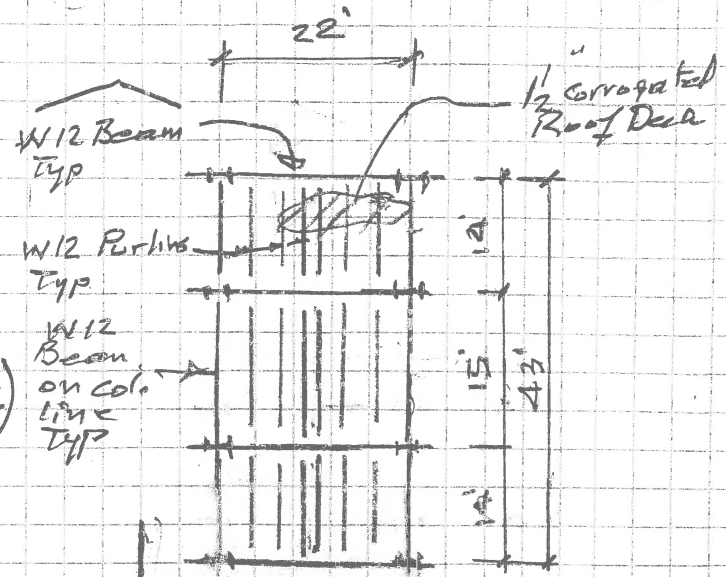 22'
1½" corrogated
Roof Deck
W12 Beam
Typ
W12 Purlins
Typ
W12
Beam
on col.
line
Typ
14'
15'
43'
14'